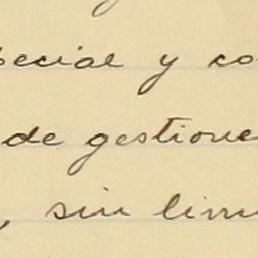 pecial y co
de gestione
, sin limi